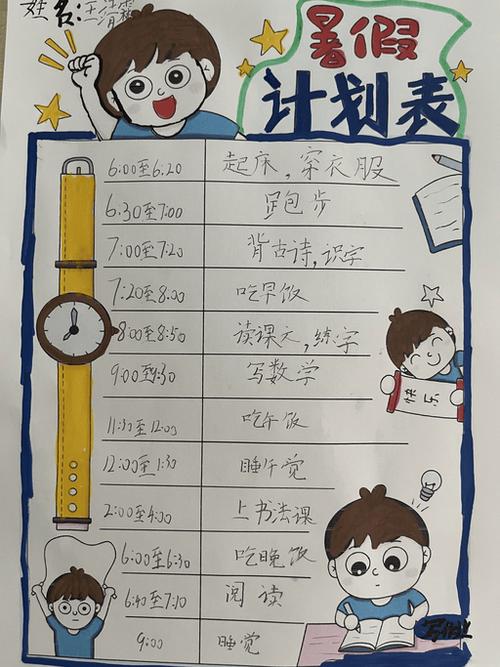 姓名:王清霖
暑假
计划表
6:00至6:20 起床,穿衣服
6:30至7:00 跑步
7:00至7:20 背古诗,识字
7:20至8:00 吃早饭
8:00至8:50 读课文,练字
9:00至9:30 写数学
快乐
11:30至12:00 吃午饭
12:00至1:30 睡午觉
2:00至4:00 上书法课
6:00至6:30 吃晚饭
6:40至7:10 阅读
写作业
9:00 睡觉